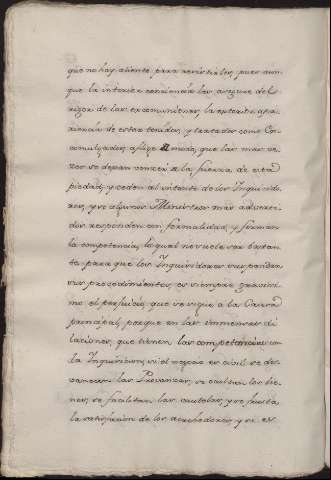 que no hay aliento para resistirles, pues aun-
que la interior conciencia les asegure del
rigor de las excomuniones, la exterior apa-
riencia de estar tenidos, y tratados como Ex-
comulgados, aflige de modo, que las mas ve-
zes se dejan vencer a la fuerza de esta
piedad, y ceden al intento de los Inquisido-
res, y si algunos Ministros mas adverti-
dos responden con formalidad, y forman
la competencia, la qual no suele ser bastan-
te, para que los Inquisidores suspendan
sus procedimientos, es siempre gravisi-
mo el perjuicio, que se sigue a la Causa
principal, porque en las immensas di-
laciones, que tienen las competencias con
la Inquisicion, si el negocio es civil se des-
vanecen las Provanzas, se ocultan los bie-
nes, se facilitan las cautelas, y se frustra
la satisfacion de los acrehedores, y si es